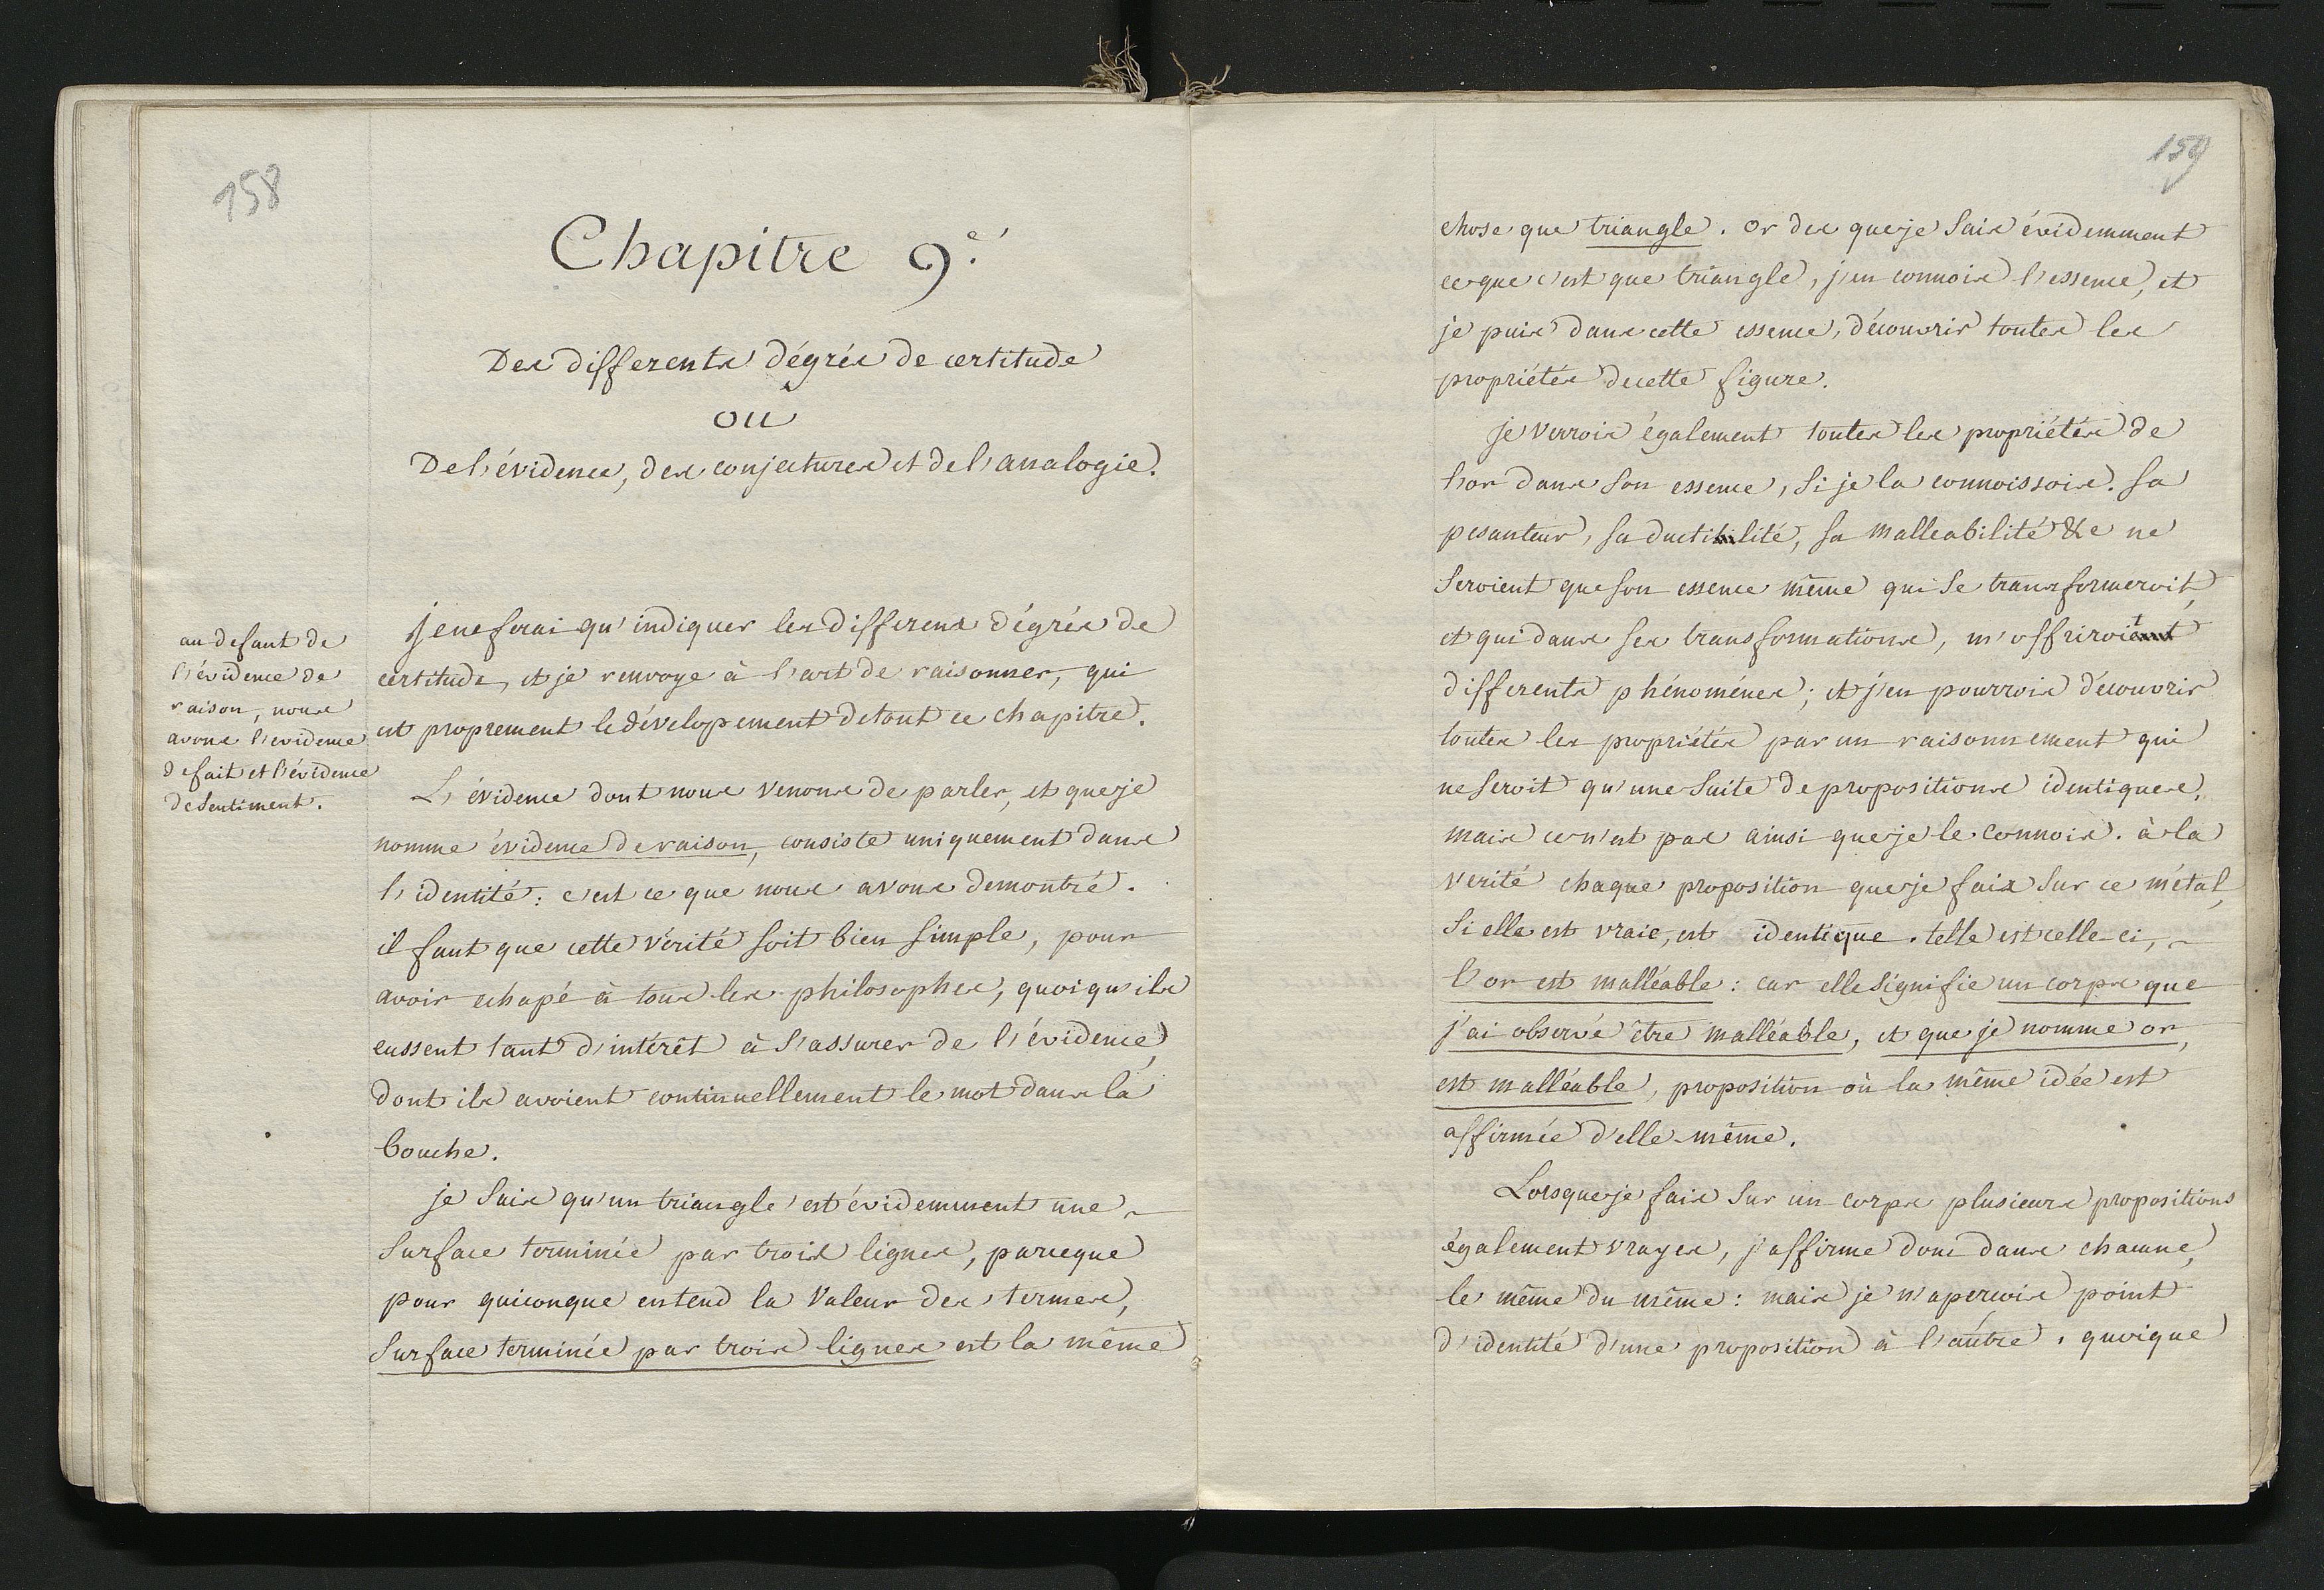 158
Chapitre 9.e
Des differents dégrés de certitude
ou
De l'évidence, des conjectures et de l'analogie.
au defaut de
l'évidence de
raison, nous
avons l'evidence
de fait et l'évidence
de sentiment.
je ne ferai qu'indiquer les differens dégrés de
certitude, et je renvoye à l'art de raisonner, qui
est proprement le dévelopement de tout ce chapitre.
L'évidence dont nous venons de parler, et que je
nomme évidence de raison, consiste uniquement dans
l'identité: c'est ce que nous avons demontré.
il faut que cette vérité soit bien simple, pour
avoir echapé à tous les philosophes, quoiqu'ils
eussent tant d'intérêt à s'assurer de l'évidence,
dont ils avoient continuellement le mot dans la
bouche.
je sais qu'un triangle est évidemment une
surface terminée par trois lignes, parceque
pour quiconque entend la valeur des termes,
surface terminée par trois lignes est la même
159
chose que triangle. or des que je sais évidemment
ce que c'est que triangle, j'en connois l'essence, et
je puis dans cette essence, découvrir toutes les
propriétés de cette figure.
je verrois également toutes les propriétés de
l'or dans son essence, si je la connoissois. sa
pesanteur, sa ductilité, sa malleabilité &c ne
seroient que son essence même qui se transformeroit,
et qui dans ses transformations, m'offriroit
differents phénoménes; et j'en pourrois découvrir
toutes les propriétés par un raisonnement qui
ne seroit qu'une suite de propositions identiques.
mais ce n'est pas ainsi que je le connois. à la
verité chaque proposition que je fais sur ce métal,
si elle est vraie, est identique. telle est celle-ci,
l'or est malléable: car elle signifie un corps que
j'ai observé être malléable, et que je nomme or,
est malléable, proposition où la même idée est
affirmée d'elle-même.
Lorsque je fais sur un corps plusieurs propositions
également vrayes, j'affirme donc dans chacune,
le même du même: mais je n'apercois point
d'identité d'une proposition à l'autre. quoique